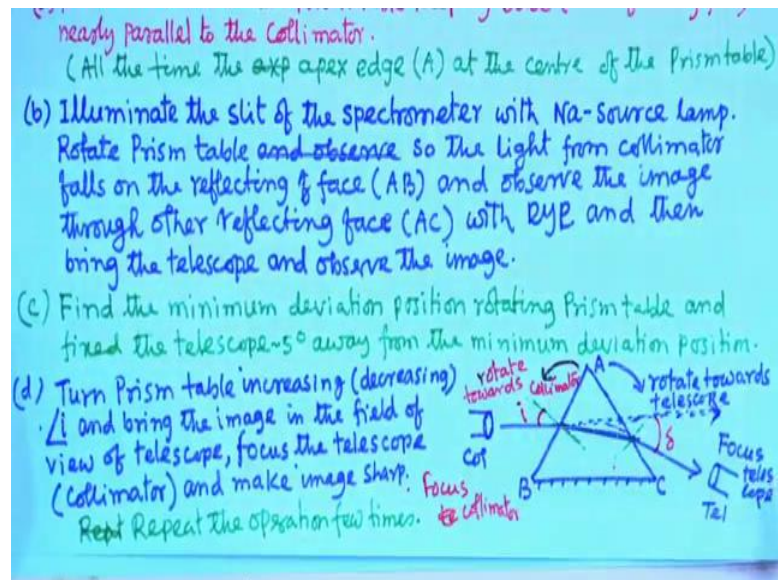 nearly parallel to the Collimator.
(All the time the exp apex edge (A) at the centre of the Prism table)
(b) Illuminate the slit of the spectrometer with Na-source lamp.
Rotate Prism table and observe so the light from collimator
falls on the reflecting of face (AB) and observe the image
through other reflecting face (AC) with EYE and then
bring the telescope and observe the image.
(c) Find the minimum deviation position rotating Prism table and
fixed the telescope ~5° away from the minimum deviation position.
(d) Turn Prism table increasing (decreasing)
∠i and bring the image in the field of
view of telescope, focus the telescope
(collimator) and make image sharp.
Rept Repeat the operation few times.
rotate
towards collimator
A
rotate towards
telescope
i
δ
Col
B
C
Focus
teles
cope
Tel
Focus
collimator